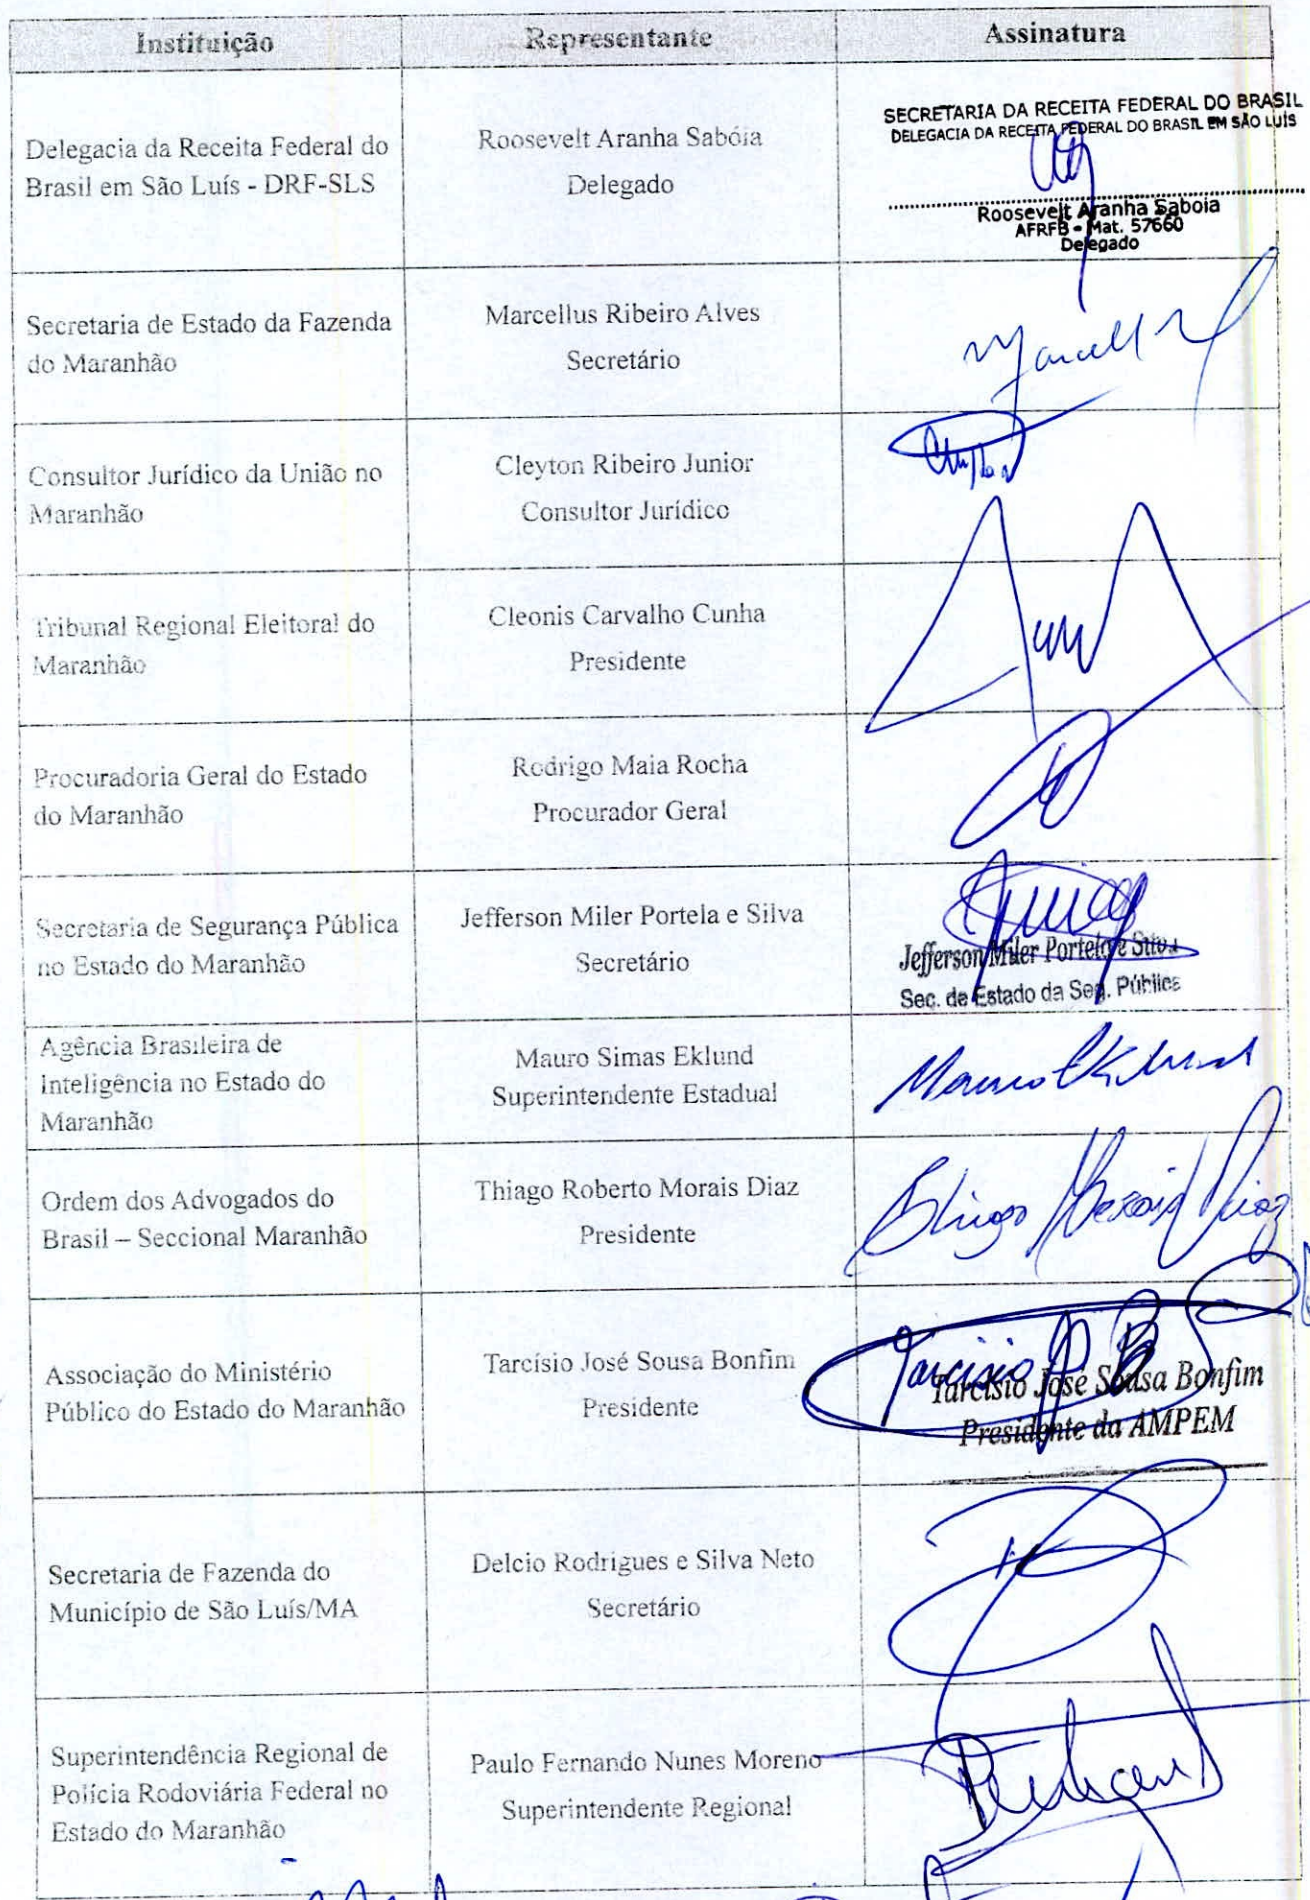 Instituição
Representante
Assinatura
Delegacia da Receita Federal do
Brasil em São Luís - DRF-SLS
Roosevelt Aranha Sabóia
Delegado
SECRETARIA DA RECEITA FEDERAL DO BRASIL
DELEGACIA DA RECEITA FEDERAL DO BRASIL EM SÃO LUÍS
Roosevelt Aranha Saboia
AFRFB - Mat. 57660
Delegado
Secretaria de Estado da Fazenda
do Maranhão
Marcellus Ribeiro Alves
Secretário
Consultor Jurídico da União no
Maranhão
Cleyton Ribeiro Junior
Consultor Jurídico
Tribunal Regional Eleitoral do
Maranhão
Cleonis Carvalho Cunha
Presidente
Procuradoria Geral do Estado
do Maranhão
Rodrigo Maia Rocha
Procurador Geral
Secretaria de Segurança Pública
no Estado do Maranhão
Jefferson Miler Portela e Silva
Secretário
Jefferson Miler Portela e Silva
Sec. de Estado da Seg. Pública
Agência Brasileira de
Inteligência no Estado do
Maranhão
Mauro Simas Eklund
Superintendente Estadual
Mauro Eklund
Ordem dos Advogados do
Brasil – Seccional Maranhão
Thiago Roberto Morais Diaz
Presidente
Thiago Morais Diaz
Associação do Ministério
Público do Estado do Maranhão
Tarcísio José Sousa Bonfim
Presidente
Tarcísio
Tarcísio José Sousa Bonfim
Presidente da AMPEM
Secretaria de Fazenda do
Município de São Luís/MA
Delcio Rodrigues e Silva Neto
Secretário
Superintendência Regional de
Polícia Rodoviária Federal no
Estado do Maranhão
Paulo Fernando Nunes Moreno
Superintendente Regional